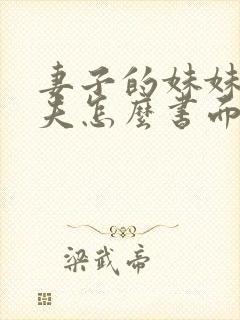 妻子的妹妹
夫怎麼書面
梁武帝